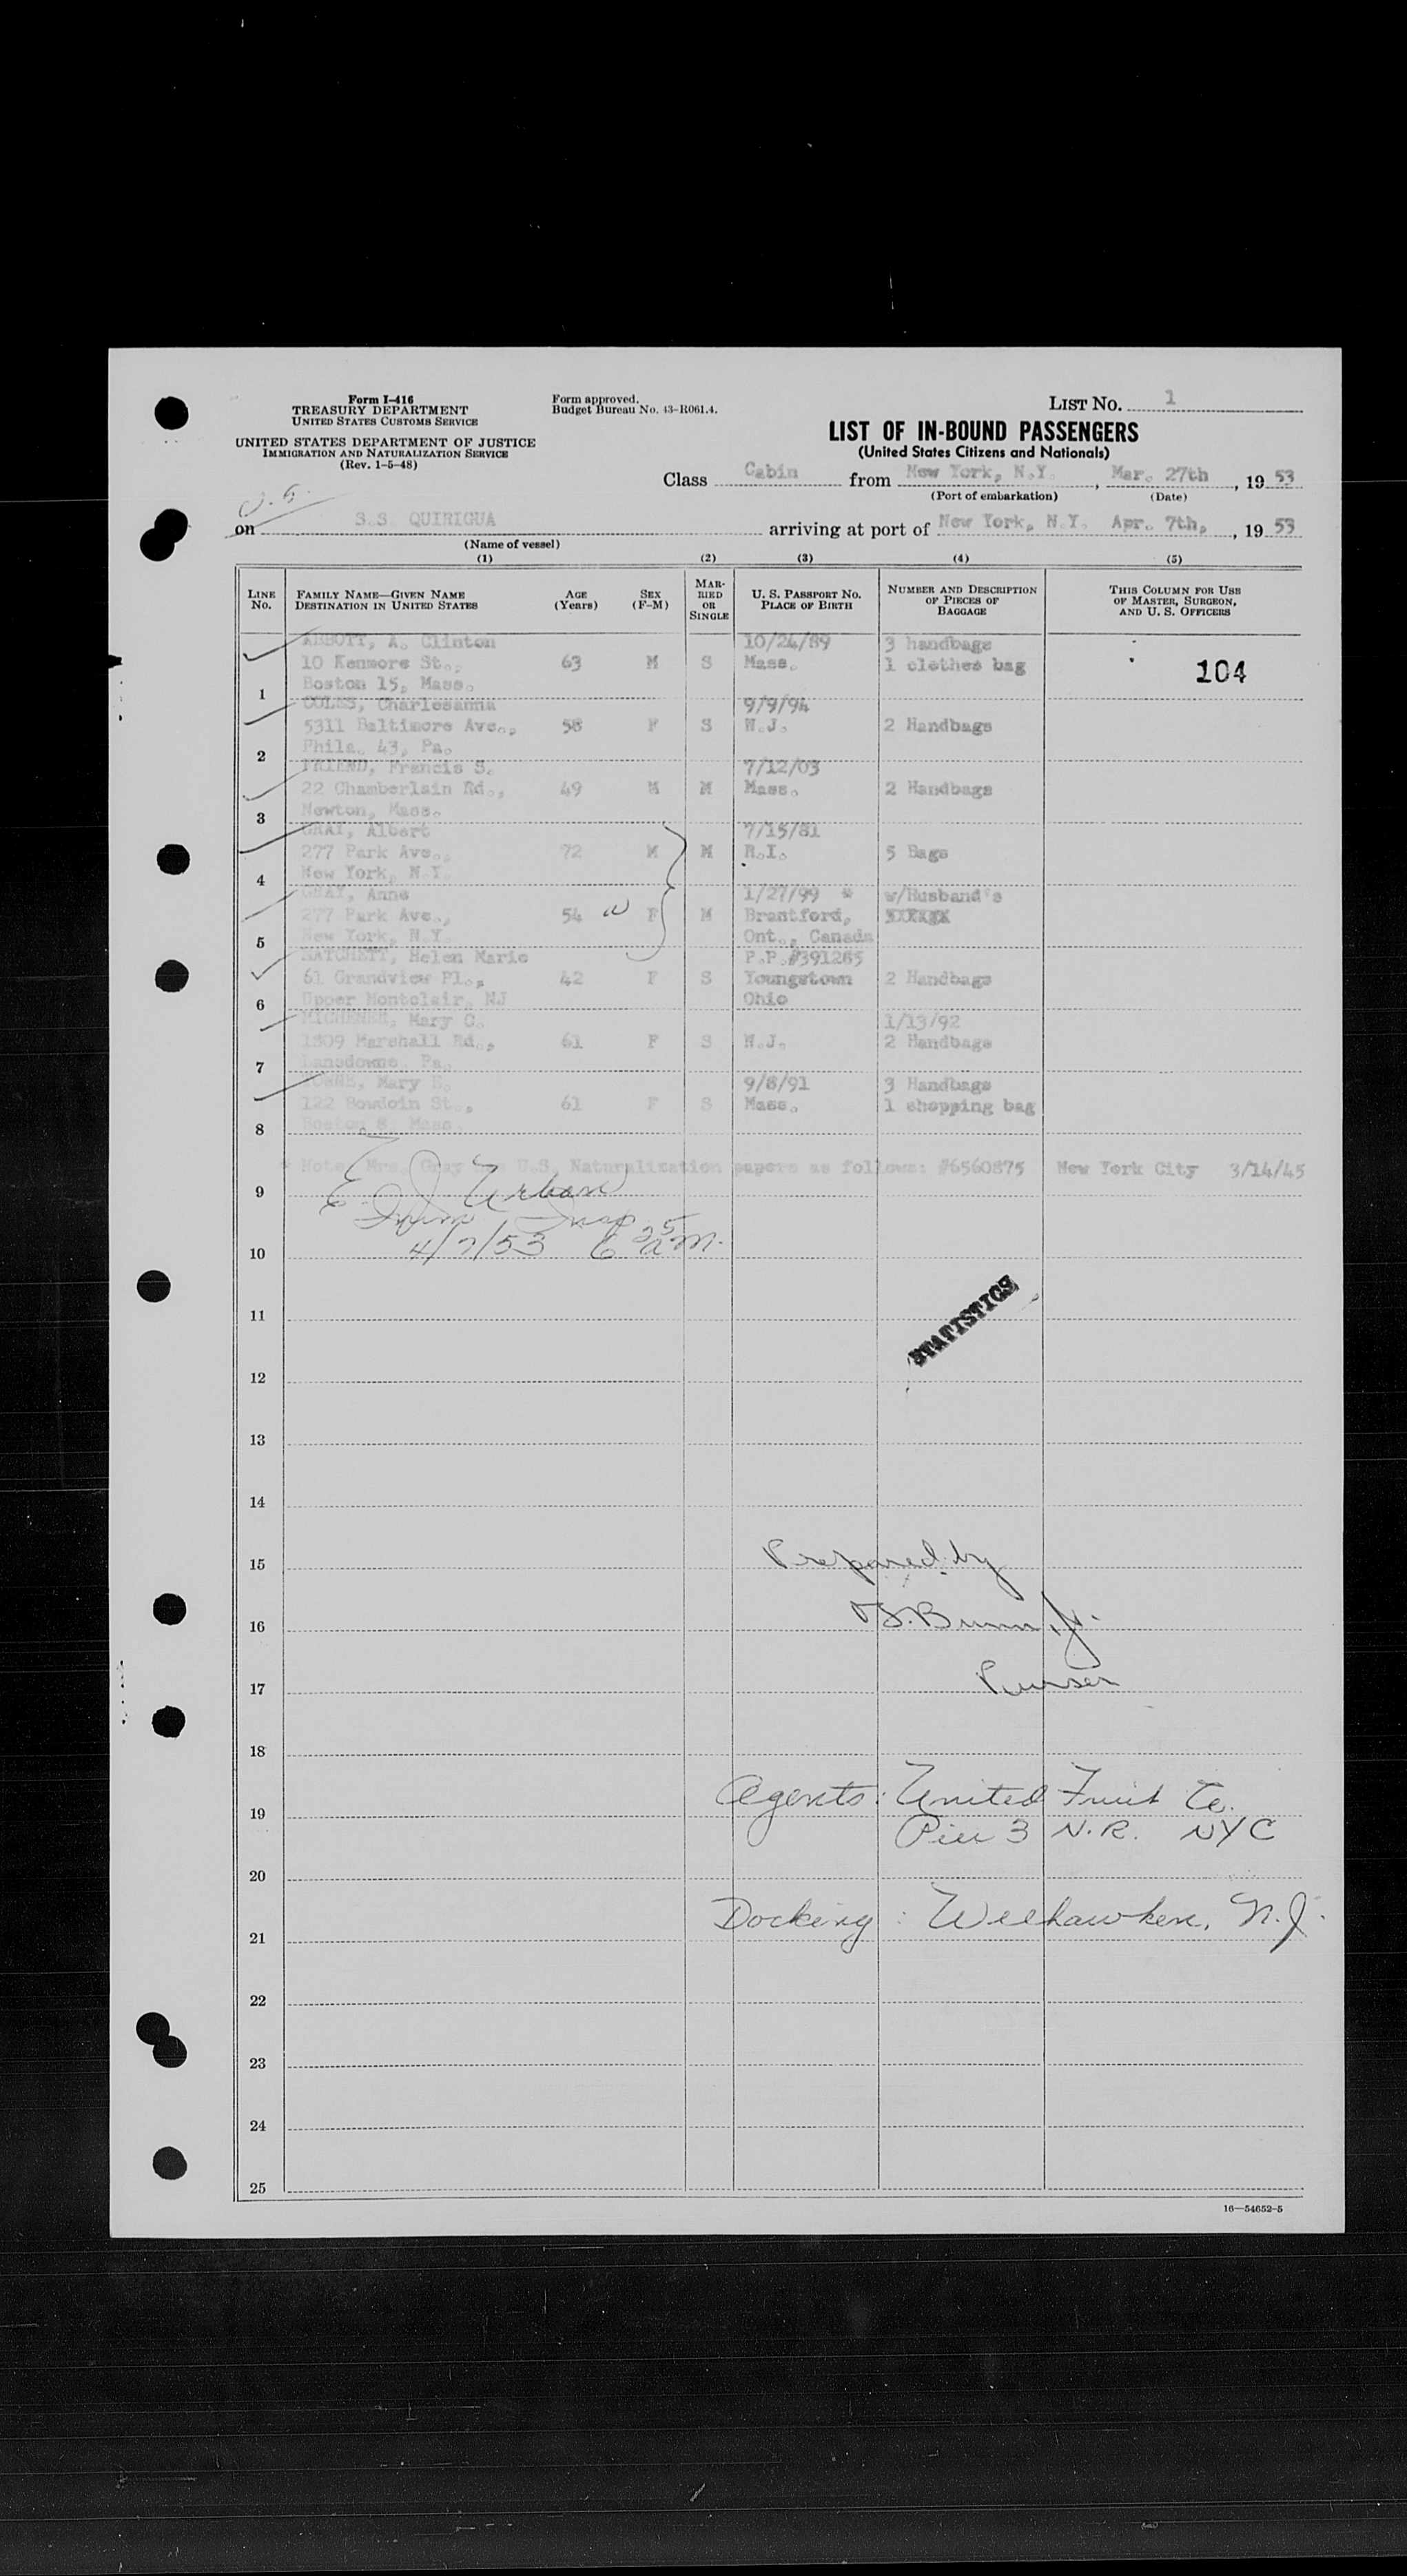 Form I-416
TREASURY DEPARTMENT
UNITED STATES CUSTOMS SERVICE
UNITED STATES DEPARTMENT OF JUSTICE
IMMIGRATION AND NATURALIZATION SERVICE
(Rev. 1-5-48)
Form approved.
Budget Bureau No. 43-R061.4.
LIST No. 1
LIST OF IN-BOUND PASSENGERS
(United States Citizens and Nationals)
Class Cabin from New York, N.Y. , Mar. 27th , 19 53
(Port of embarkation) (Date)
on S.S. QUIRIGUA arriving at port of New York, N.Y. Apr. 7th, , 19 53
(Name of vessel)
(1) (2) (3) (4) (5)
LINE No. FAMILY NAME—GIVEN NAME DESTINATION IN UNITED STATES AGE (Years) SEX (F-M) MARRIED OR SINGLE U. S. PASSPORT NO. PLACE OF BIRTH NUMBER AND DESCRIPTION OF PIECES OF BAGGAGE THIS COLUMN FOR USE OF MASTER, SURGEON, AND U. S. OFFICERS
ABBOTT, A. Clinton 10/24/89 3 handbags
10 Kenmore St., 63 M S Mass. 1 clothes bag 104
1 Boston 15, Mass.
COLES, Charlesanna 9/9/94
5311 Baltimore Ave., 58 F S N.J. 2 Handbags
2 Phila. 43, Pa.
FRIEND, Francis S. 7/12/03
22 Chamberlain Rd., 49 M M Mass. 2 Handbags
3 Newton, Mass.
GRAY, Albert 7/15/81
277 Park Ave., 72 M M R.I. 5 Bags
4 New York, N.Y.
GRAY, Anne 1/27/99 * w/Husband's
277 Park Ave., 54 F M Brantford,
5 New York, N.Y. Ont., Canada
HATCHETT, Helen Marie P.P.#391285
61 Grandview Pl., 42 F S Youngstown 2 Handbags
6 Upper Montclair, NJ Ohio
MICHENER, Mary C. 1/13/92
1809 Marshall Rd., 61 F S N.J. 2 Handbags
7 Lansdowne, Pa.
Mary E. 9/8/91 3 Handbags
122 Bowdoin St., 61 F S Mass. 1 shopping bag
8 Boston 8, Mass.
* Note: Mrs. Gray U.S. Naturalization papers as follows: #6560875 New York City 3/14/45
9 E. J. Urban
Imm Insp
10 4/7/53 6 35 a.m.
11
STATISTICS
12
13
14
15 Prepared by
16 Bunn, Jr.
17 Purser
18
19 Agents: United Fruit Co.
Pier 3 N.R. NYC
20
21 Docking: Weehawken, N.J.
22
23
24
25
16—54652-5